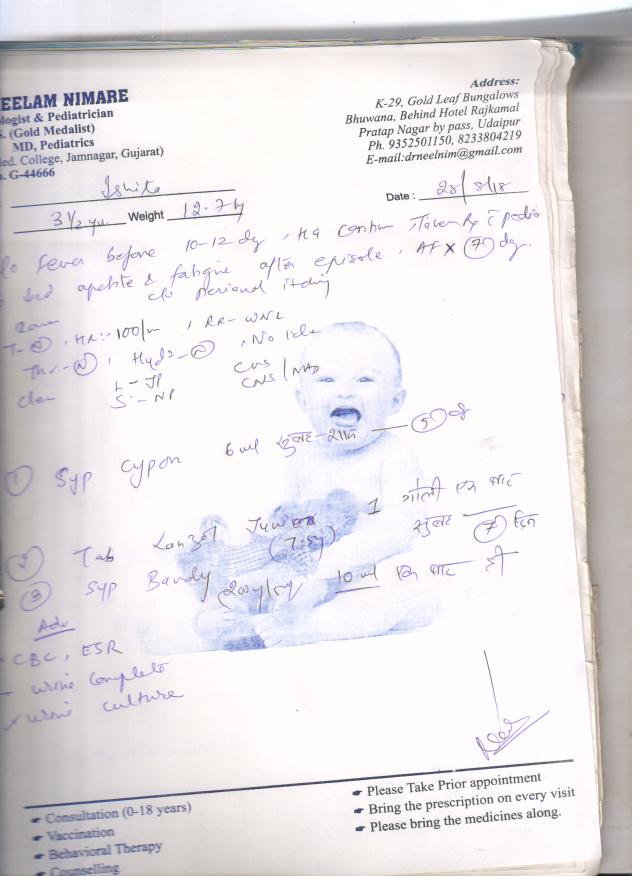 EELAM NIMARE
logist & Pediatrician
S. (Gold Medalist)
MD, Pediatrics
ed. College, Jamnagar, Gujarat)
o. G-44666
Address:
K-29, Gold Leaf Bungalows
Bhuwana, Behind Hotel Rajkamal
Pratap Nagar by pass, Udaipur
Ph. 9352501150, 8233804219
E-mail:drneelnim@gmail.com
Ishita
Date : 28/8/18
3 1/2 yr Weight 12.7 kg
c/o fever before 10-12 dy,
apetite & fatigue after episode, AF x 7 dy.
c/o perianal itching
HR:- 100/m, RR- WNL
Thr- N, Hyd2- N,
CVS
S:- NP CNS/NAD
① Syp Cypon 6 ml सुबह-शाम — 5 d
② Tab Lanzol Junior 1 गोली एक बार
सुबह 7 दिन
③ Syp Bandy 10 ml एक बार ही
Adv
- CBC, ESR
- urine complete
urine culture
Consultation (0-18 years)
Vaccination
Behavioral Therapy
Counselling
Please Take Prior appointment
Bring the prescription on every visit
Please bring the medicines along.